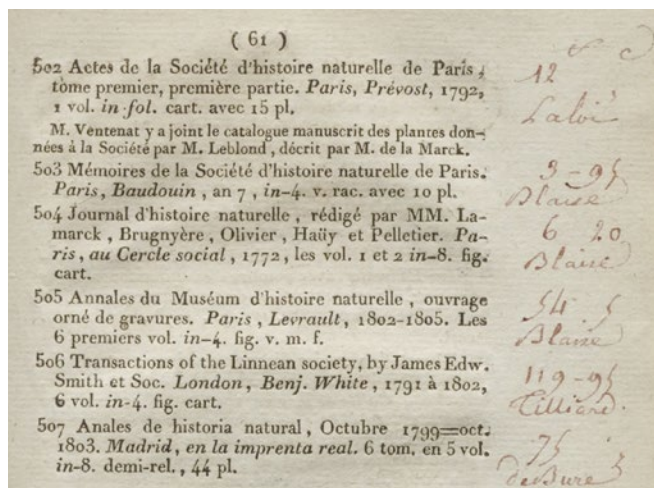 ( 61 )
502 Actes de la Société d'histoire naturelle de Paris,
tome premier, première partie. Paris, Prévost, 1792,
1 vol. in-fol. cart. avec 15 pl.
12
M. Ventenat y a joint le catalogue manuscrit des plantes don-
nées à la Société par M. Leblond, décrit par M. de la Marck.
503 Mémoires de la Société d'histoire naturelle de Paris.
Paris, Baudouin, an 7, in-4. v. rac. avec 10 pl.
3-95
Blaise
504 Journal d'histoire naturelle, rédigé par MM. La-
marck, Brugnyère, Olivier, Haüy et Pelletier. Pa-
ris, au Cercle social, 1772, les vol. 1 et 2 in-8. fig.
cart.
6 20
Blaise
505 Annales du Muséum d'histoire naturelle, ouvrage
orné de gravures. Paris, Levrault, 1802-1805. Les
6 premiers vol. in-4. fig. v. m. f.
54 5
Blaise
506 Transactions of the Linnean society, by James Edw.
Smith et Soc. London, Benj. White, 1791 à 1802,
6 vol. in-4. fig. cart.
119-95
Tilliard.
507 Anales de historia natural, Octubre 1799=oct.
1803. Madrid, en la imprenta real. 6 tom. en 5 vol.
in-8. demi-rel., 44 pl.
75
de Bure